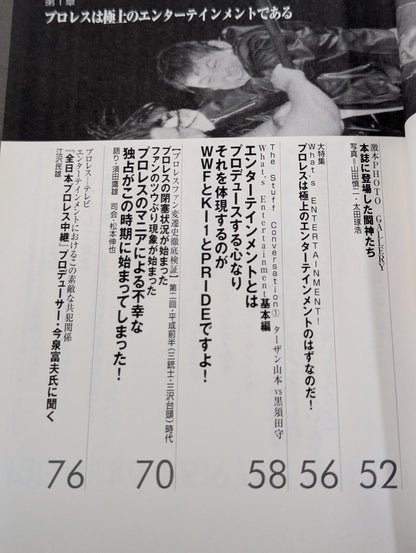 第1章
プロレスは極上のエンターテインメントである
激本PHOTO GALLERY
本誌に登場した闘神たち
写真=山田慎二・太田琢浩
52
大特集
What's ENTERTAINMENT!
プロレスは極上のエンターテインメントのはずなのだ!
56
The Stuff Conversation① ターザン山本 vs 黒須田守
What's Entertainment基本編
エンターテインメントとは
プロデュースする心なり
それを体現するのが
WWFとK-1とPRIDEですよ!
58
【プロレスファン変遷史徹底検証】第二回・平成前半(三銃士・三沢台頭)時代
プロレスの閉塞状況が始まった
ファンのツウぶり現象が始まった
プロレスのマニアによる不幸な
独占がこの時期に始まってしまった!
語り・須田鷹雄 司会・松本伸也
70
プロレス―テレビ
エンターテインメントにおけるこの素敵な共犯関係
「全日本プロレス中継」プロデューサー・今泉富夫氏に聞く
江沢民雄
76